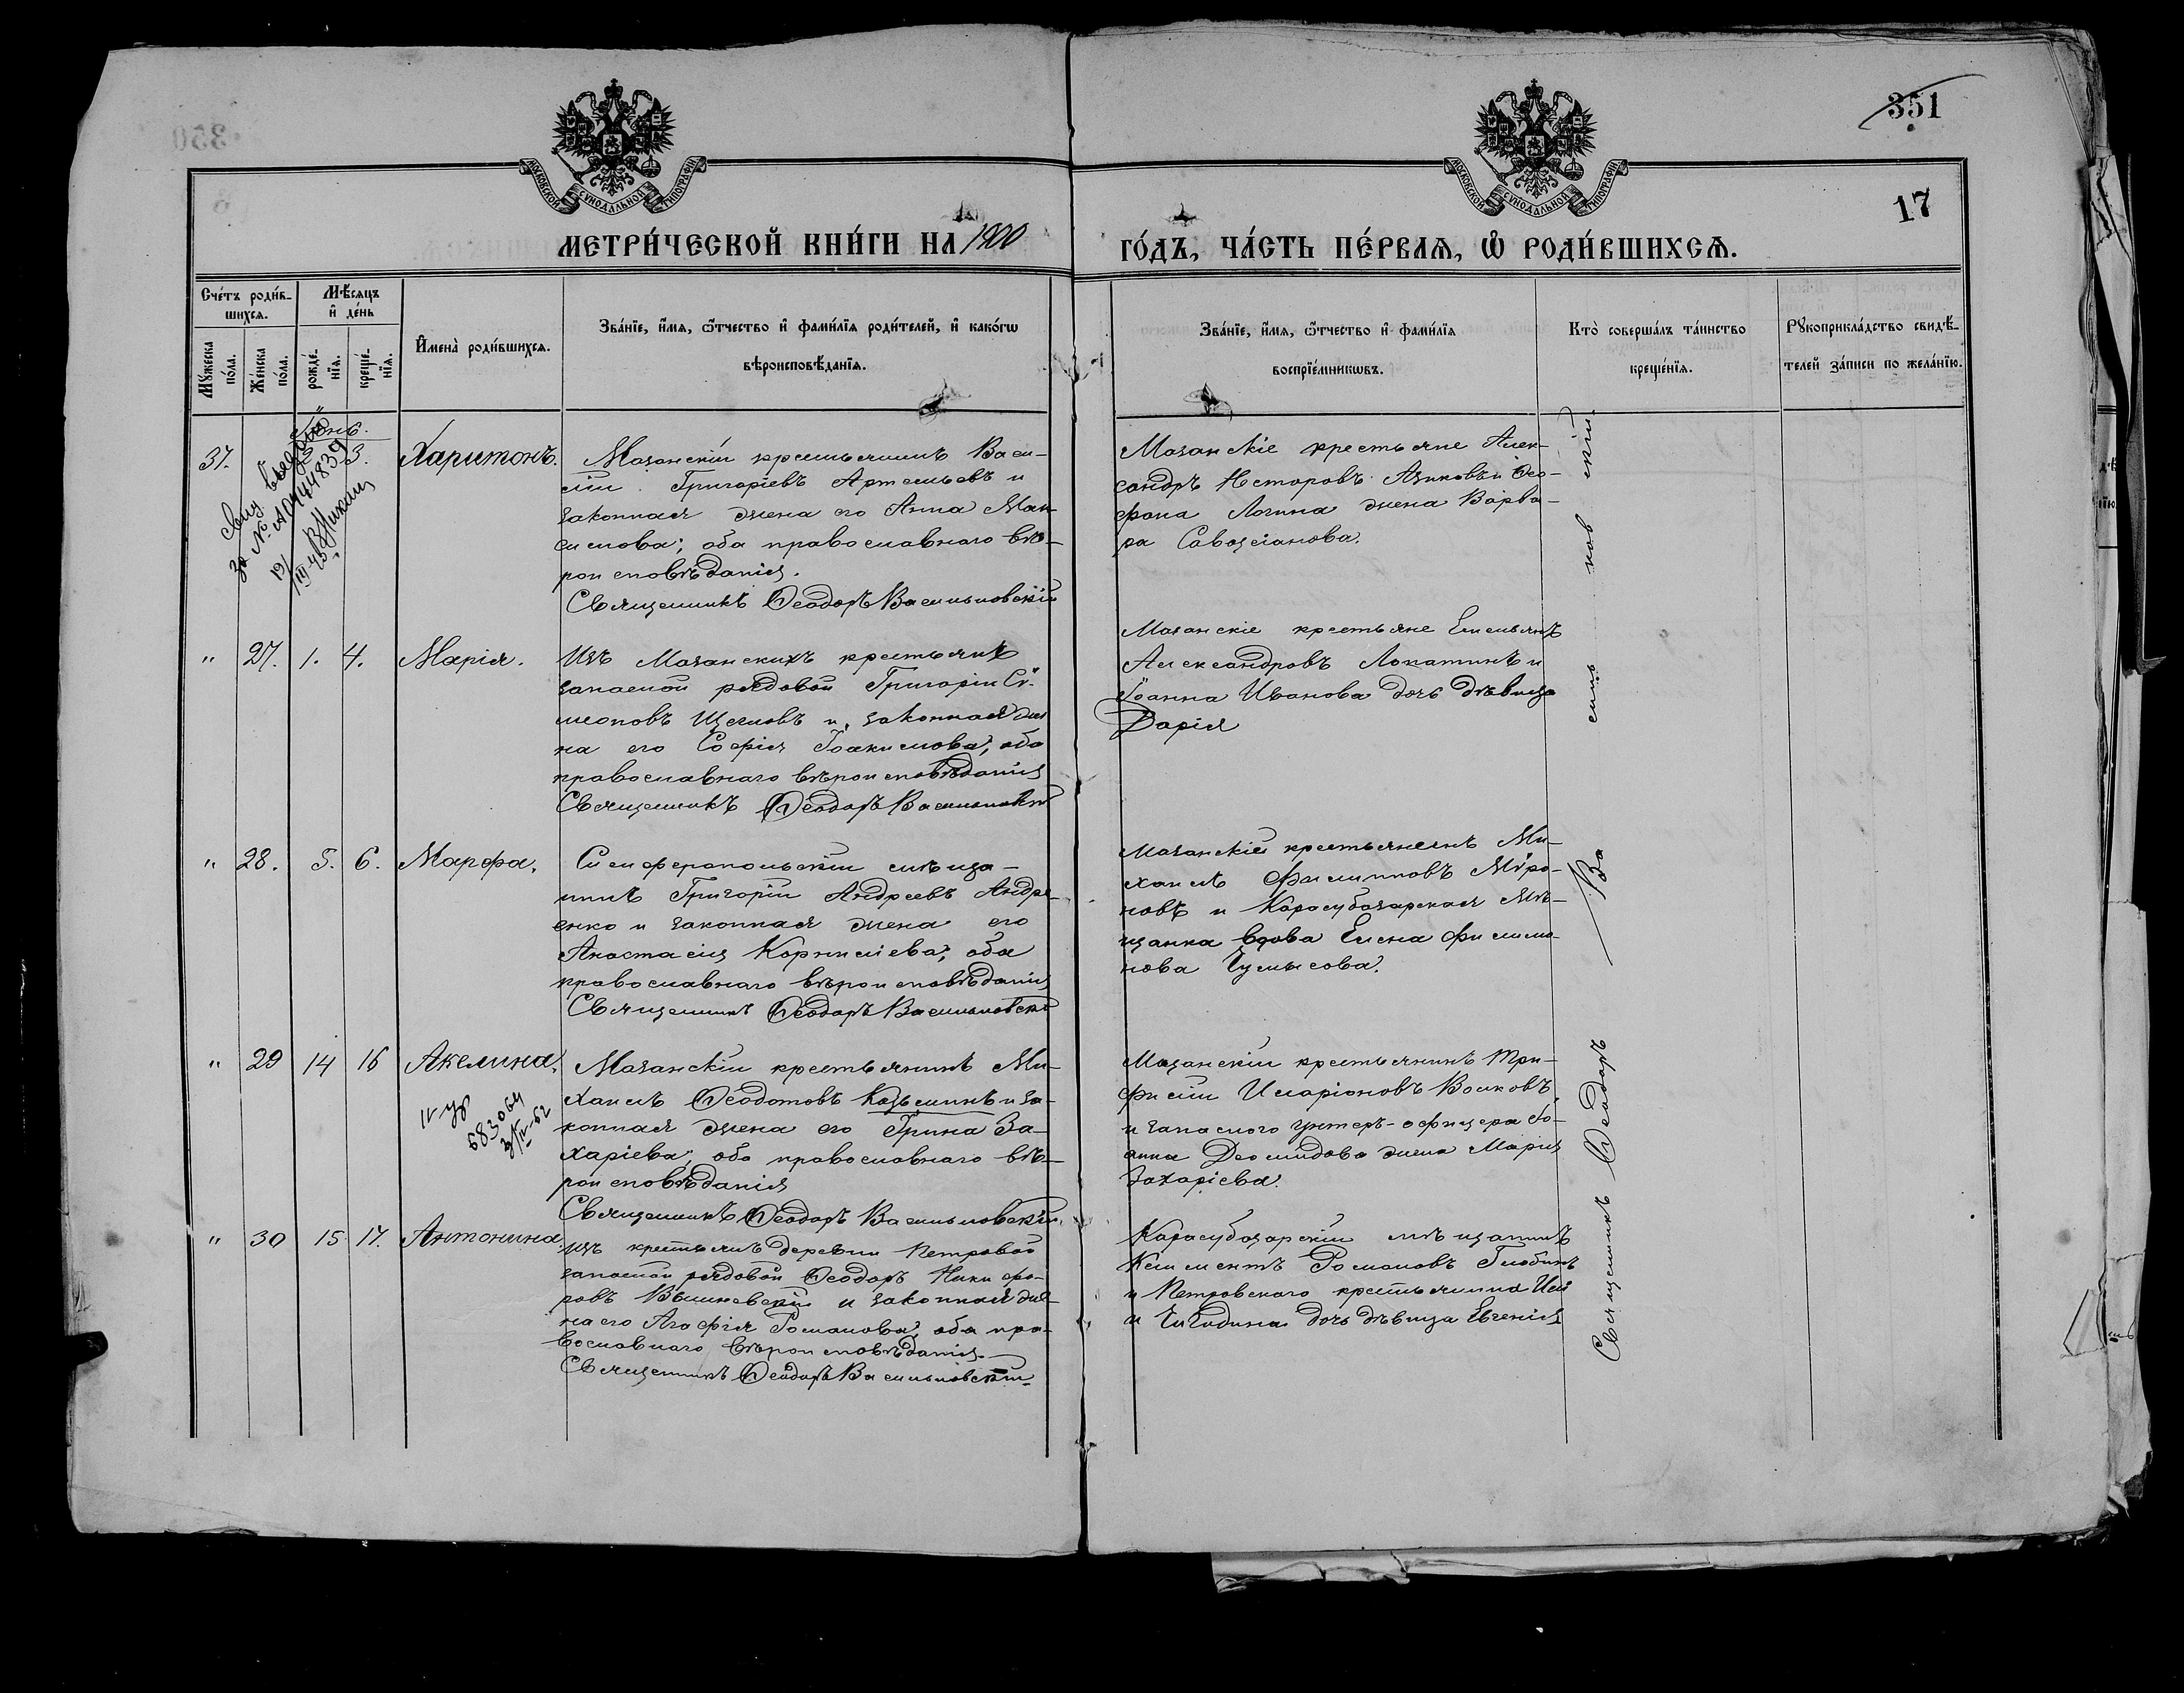 351
17
МОСКОВСКОЙ СѴНОДАЛЬНОЙ ТИПОГРАФІИ
МОСКОВСКОЙ СѴНОДАЛЬНОЙ ТИПОГРАФІИ
МЕТРИ́ЧЕСКОЙ КНИ́ГИ НА 1900
ГО́ДЪ, ЧА́СТЬ ПЕ́РВАѦ, Ѽ РОДИ́ВШИХСѦ.
Сче́тъ роди́в-
шихсѧ.
Мꙋ́жеска по́ла.
Же́нска по́ла.
Мѣ́сѧцъ
и҆ де́нь
рожде́-
нїѧ.
креще́-
нїѧ.
И҆мена̀ роди́вшихсѧ.
Зва́нїе, и҆́мѧ, ѻ҆́тчество и҆ фами́лїѧ роди́телей, и҆ како́гѡ
вѣроисповѣ́данїѧ.
Зва́нїе, и҆́мѧ, ѻ҆́тчество и҆ фами́лїѧ
воспрїе́мникѡвъ.
Кто̀ соверша́лъ та́инство
креще́нїѧ.
Рꙋкоприкла́дство свидѣ́-
телей за́писи по жела́нїю.
37.
3.
Харитонъ.
Мазанскій крестьянинъ Васи-
лій Григоріевъ Артемьевъ и
законная жена его Анна Мак-
симова; оба православнаго вѣ-
роисповѣданія.
Священникъ Ѳеодоръ Васильковскій
Мазанскіе крестьяне Алек-
сандръ Несторовъ Азиковъ и Ѳео-
фана Логина жена Варва-
ра
" 27. 1. 4. Марія.
Изъ Мазанскихъ крестьянъ
запасной рядовой Григорій Сѵ-
меоновъ Щегловъ и законная же
на его Софія Іоакимова; оба
православнаго вѣроисповѣданія
Священникъ Ѳеодоръ Васильковскій
Мазанскіе крестьяне Емельянъ
Александровъ Лопатинъ и
Іоанна Иванова дочь дѣвица
Дарія
" 28. 5. 6. Марфа.
Симферопольскій мѣща-
нинъ Григорій Андреевъ Андре-
енко и законная жена его
Анастасія Корнилієва; оба
православнаго вѣроисповѣданія
Священникъ Ѳеодоръ Васильковскі
Мазанскій крестьянинъ Ми-
хаилъ Филипповъ Мѵро-
новъ и Карасубазарская мѣ-
щанка вдова Елена Филимо-
нова
" 29 14 16 Акелина.
IV
683064
Мазанскій крестьянинъ Ми-
хаилъ Ѳеодотовъ Козьминъ и за-
конная жена его Ірина За-
харіева; оба православнаго вѣ-
роисповѣданія
Священникъ Ѳеодоръ Васильковскій
Мазанскій крестьянинъ Три-
филій Иларіоновъ Волковъ
и запасного унтеръ-офицера Іо-
анна Деомидова жена Марія
Захаріева.
" 30 15 17. Антонина
изъ крестьянъ деревни Петровой
запасной рядовой Ѳеодоръ Никифо-
ровъ Вишневскій и законная же-
на его Агафія Романова; оба пра-
вославнаго вѣроисповѣданія.
Священникъ Ѳеодоръ Васильковскій
Карасубазарскій мѣщанинъ
Климентъ Романовъ Глобинъ
и Петровскаго крестьянина
дочь дѣвица Евгенія
Священникъ Ѳеодоръ Ва силь ков скій.